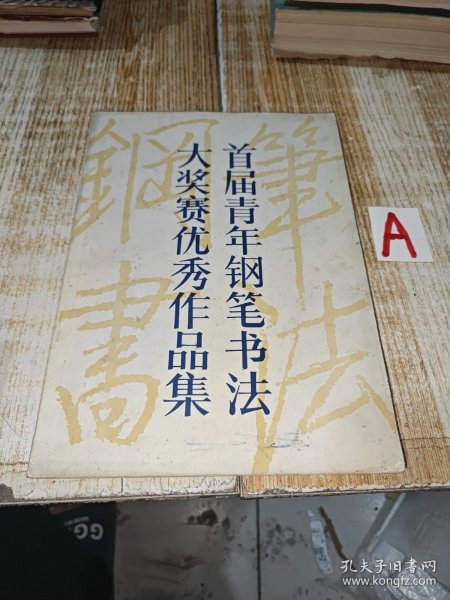 首届青年钢笔书法
大奖赛优秀作品集
鋼筆
書法
A
GG
孔夫子旧书网
www.kongfz.com